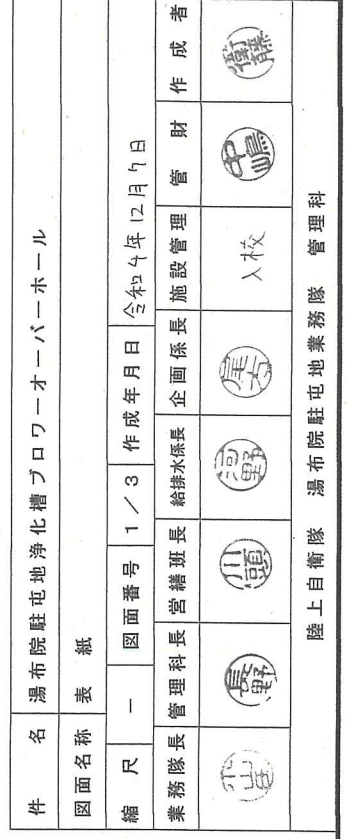 件名 湯布院駐屯地浄化槽ブロワーオーバーホール
図面名称 表紙
縮尺 － 図面番号 1／3 作成年月日 令和4年12月7日
業務隊長 管理科長 営繕班長 給排水係長 企画係長 施設管理 管財 作成者
長野 川頭 河野 入校 中嶋 衛藤
陸上自衛隊 湯布院駐屯地業務隊 管理科